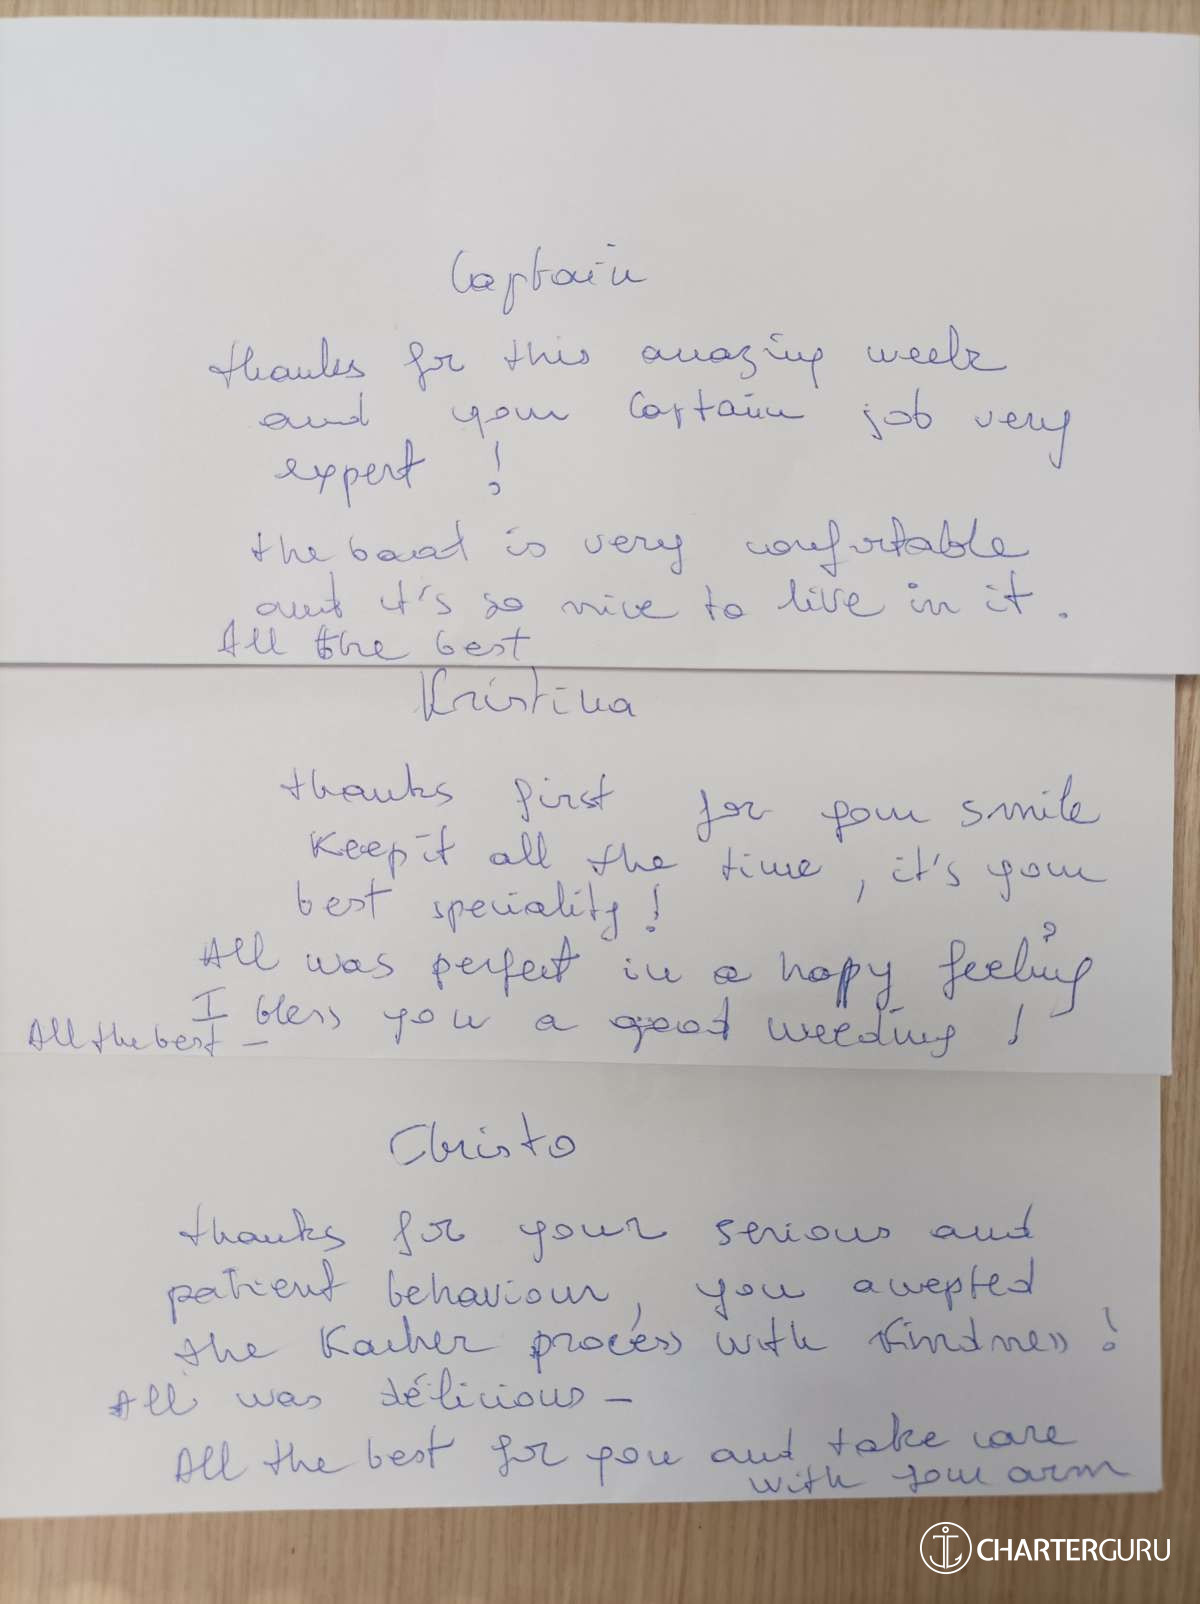 Captain
thanks for this amazing week
and your Captain job very
expert !
the boat is very confortable
and it's so nice to live in it.
All the best
Kristina
thanks first for your smile
Keep it all the time, it's your
best speciality !
All was perfect in a happy feeling
I bless you a good weeding !
All the best -
Christo
thanks for your serious and
patient behaviour, you accepted
the Kasher process with Kindness !
All was délicious -
All the best for you and take care
with your arm
CHARTERGURU